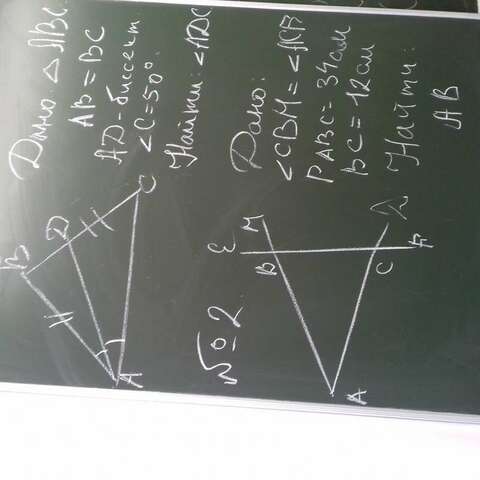 B
D
A
C
Дано: △ ABC
AB = BC
AD - биссект.
∠C = 50°.
Найти: ∠ADC
№ 2
E
B M
A
C
F
Дано:
∠CBM = ∠ACF
P ABC = 34 см
BC = 12 см
Найти:
AB